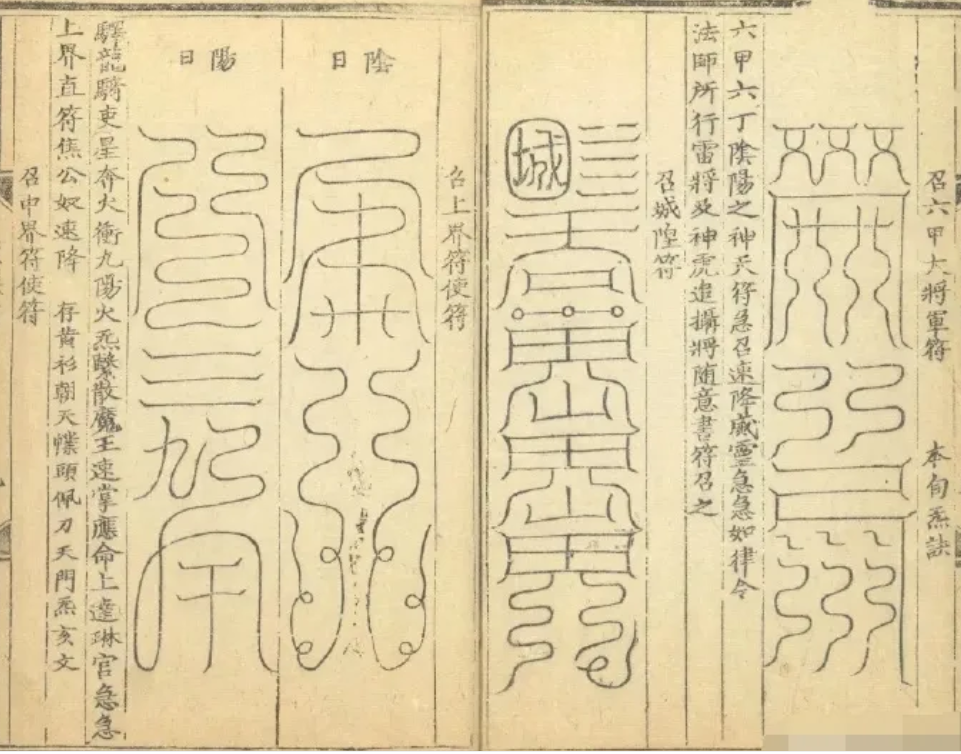 召六甲大將軍符 本旬炁訣
六甲六丁陰陽之神天符急召速降威靈急急如律令
法師所行雷將及神虎追攝將隨意書符召之
召城隍符
城
召上界符使符
陰日
陽日
驛龍騎吏星奔火衝九陽火炁 散魔王速掌應命上達琳官急急
上界直符焦公奴速降 存黃衫朝天幞頭佩刀天門炁亥文
召中界符使符